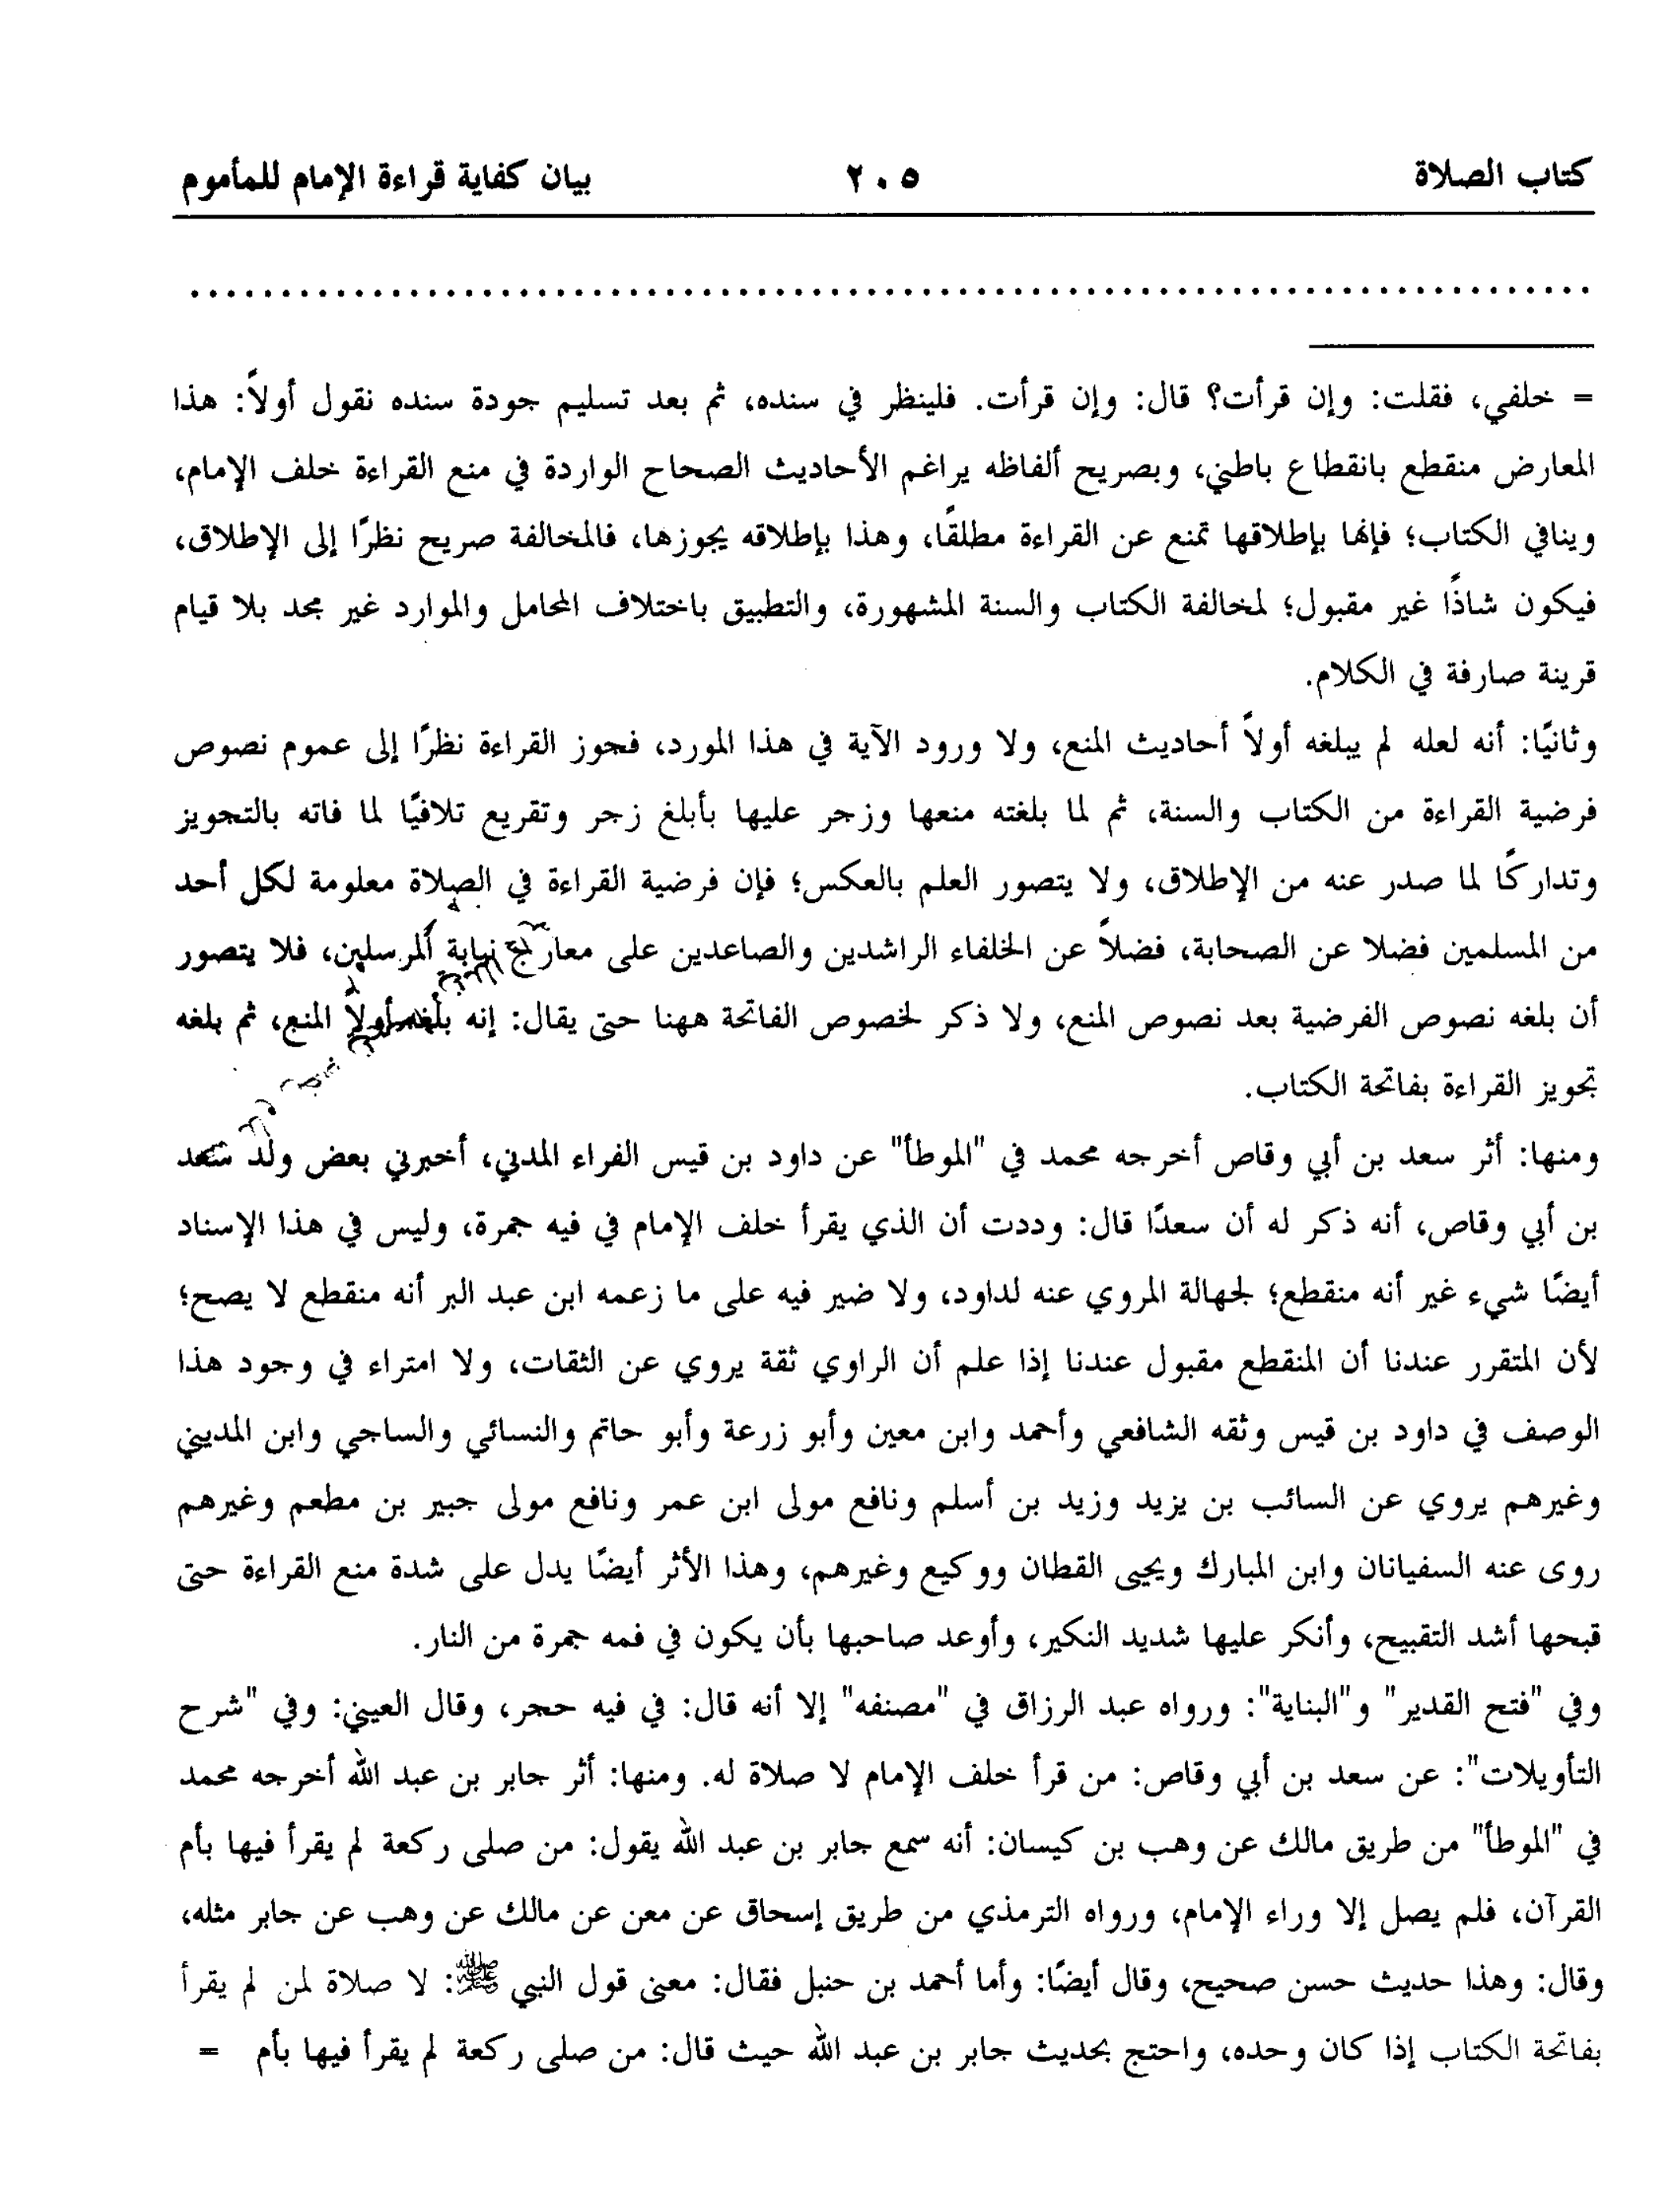 كتاب الصلاة ٢٠٥ بيان كفاية قراءة الإمام للمأموم
................................................................................
= خلفي، فقلت: وإن قرأت؟ قال: وإن قرأت. فلينظر في سنده، ثم بعد تسليم جودة سنده نقول أولاً: هذا
المعارض منقطع بانقطاع باطني، وبصريح ألفاظه يراغم الأحاديث الصحاح الواردة في منع القراءة خلف الإمام،
وينافي الكتاب؛ فإنها بإطلاقها تمنع عن القراءة مطلقًا، وهذا بإطلاقه يجوزها، فالمخالفة صريح نظرًا إلى الإطلاق،
فيكون شاذًا غير مقبول؛ لمخالفة الكتاب والسنة المشهورة، والتطبيق باختلاف المحامل والموارد غير مجد بلا قيام
قرينة صارفة في الكلام.
وثانيًا: أنه لعله لم يبلغه أولاً أحاديث المنع، ولا ورود الآية في هذا المورد، فجوز القراءة نظرًا إلى عموم نصوص
فرضية القراءة من الكتاب والسنة، ثم لما بلغته منعها وزجر عليها بأبلغ زجر وتقريع تلافيًا لما فاته بالتجويز
وتداركًا لما صدر عنه من الإطلاق، ولا يتصور العلم بالعكس؛ فإن فرضية القراءة في الصلاة معلومة لكل أحد
من المسلمين فضلا عن الصحابة، فضلاً عن الخلفاء الراشدين والصاعدين على معارج نيابة المرسلين، فلا يتصور
أن بلغه نصوص الفرضية بعد نصوص المنع، ولا ذكر لخصوص الفاتحة ههنا حتى يقال: إنه بلغه أولاً المنع، ثم بلغه
تجويز القراءة بفاتحة الكتاب.
ومنها: أثر سعد بن أبي وقاص أخرجه محمد في "الموطأ" عن داود بن قيس الفراء المدني، أخبرني بعض ولد سعد
بن أبي وقاص، أنه ذكر له أن سعدًا قال: وددت أن الذي يقرأ خلف الإمام في فيه جمرة، وليس في هذا الإسناد
أيضًا شيء غير أنه منقطع؛ لجهالة المروي عنه لداود، ولا ضير فيه على ما زعمه ابن عبد البر أنه منقطع لا يصح؛
لأن المتقرر عندنا أن المنقطع مقبول عندنا إذا علم أن الراوي ثقة يروي عن الثقات، ولا امتراء في وجود هذا
الوصف في داود بن قيس وثقه الشافعي وأحمد وابن معين وأبو زرعة وأبو حاتم والنسائي والساجي وابن المديني
وغيرهم يروي عن السائب بن يزيد وزيد بن أسلم ونافع مولى ابن عمر ونافع مولى جبير بن مطعم وغيرهم
روى عنه السفيانان وابن المبارك ويحيى القطان ووكيع وغيرهم، وهذا الأثر أيضًا يدل على شدة منع القراءة حتى
قبحها أشد التقبيح، وأنكر عليها شديد النكير، وأوعد صاحبها بأن يكون في فمه جمرة من النار.
وفي "فتح القدير" و"البناية": ورواه عبد الرزاق في "مصنفه" إلا أنه قال: في فيه حجر، وقال العيني: وفي "شرح
التأويلات": عن سعد بن أبي وقاص: من قرأ خلف الإمام لا صلاة له. ومنها: أثر جابر بن عبد الله أخرجه محمد
في "الموطأ" من طريق مالك عن وهب بن كيسان: أنه سمع جابر بن عبد الله يقول: من صلى ركعة لم يقرأ فيها بأم
القرآن، فلم يصل إلا وراء الإمام، ورواه الترمذي من طريق إسحاق عن معن عن مالك عن وهب عن جابر مثله،
وقال: وهذا حديث حسن صحيح، وقال أيضًا: وأما أحمد بن حنبل فقال: معنى قول النبي ﷺ: لا صلاة لمن لم يقرأ
بفاتحة الكتاب إذا كان وحده، واحتج بحديث جابر بن عبد الله حيث قال: من صلى ركعة لم يقرأ فيها بأم =